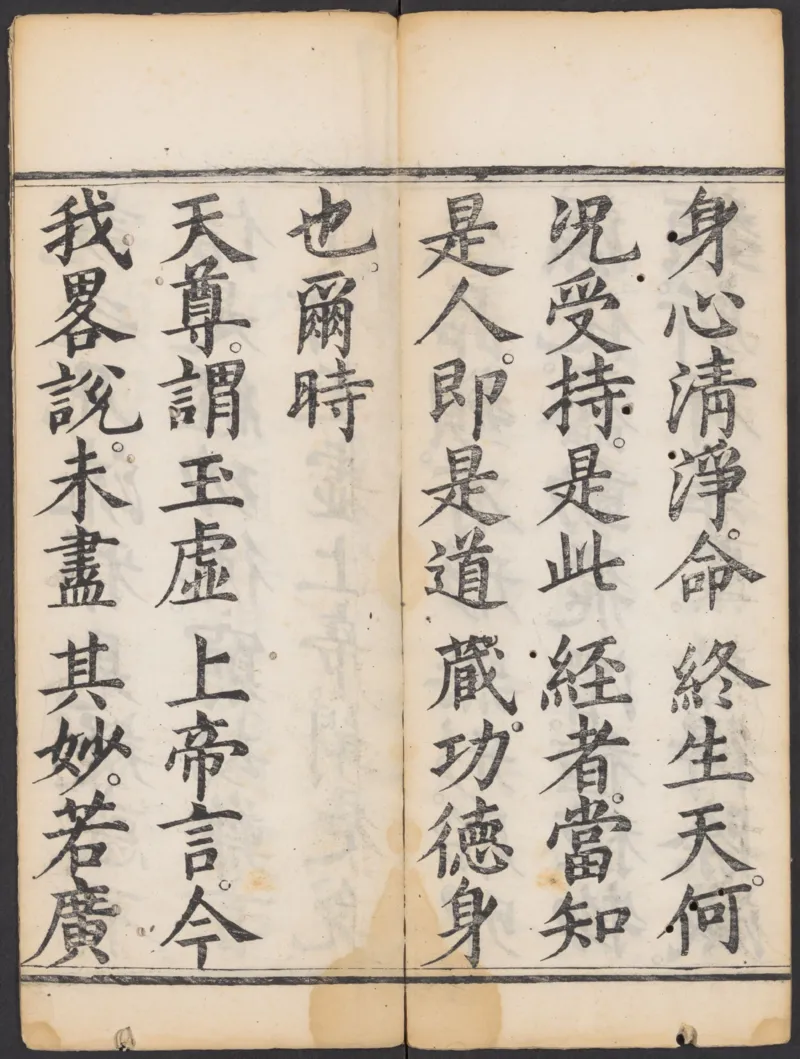 身心清淨。命終生天。何
况受持。是此経者。當知
是人。即是道蔵。功德身
也。爾時
天尊。謂玉虛上帝言。今
我畧說。未盡其妙。若廣